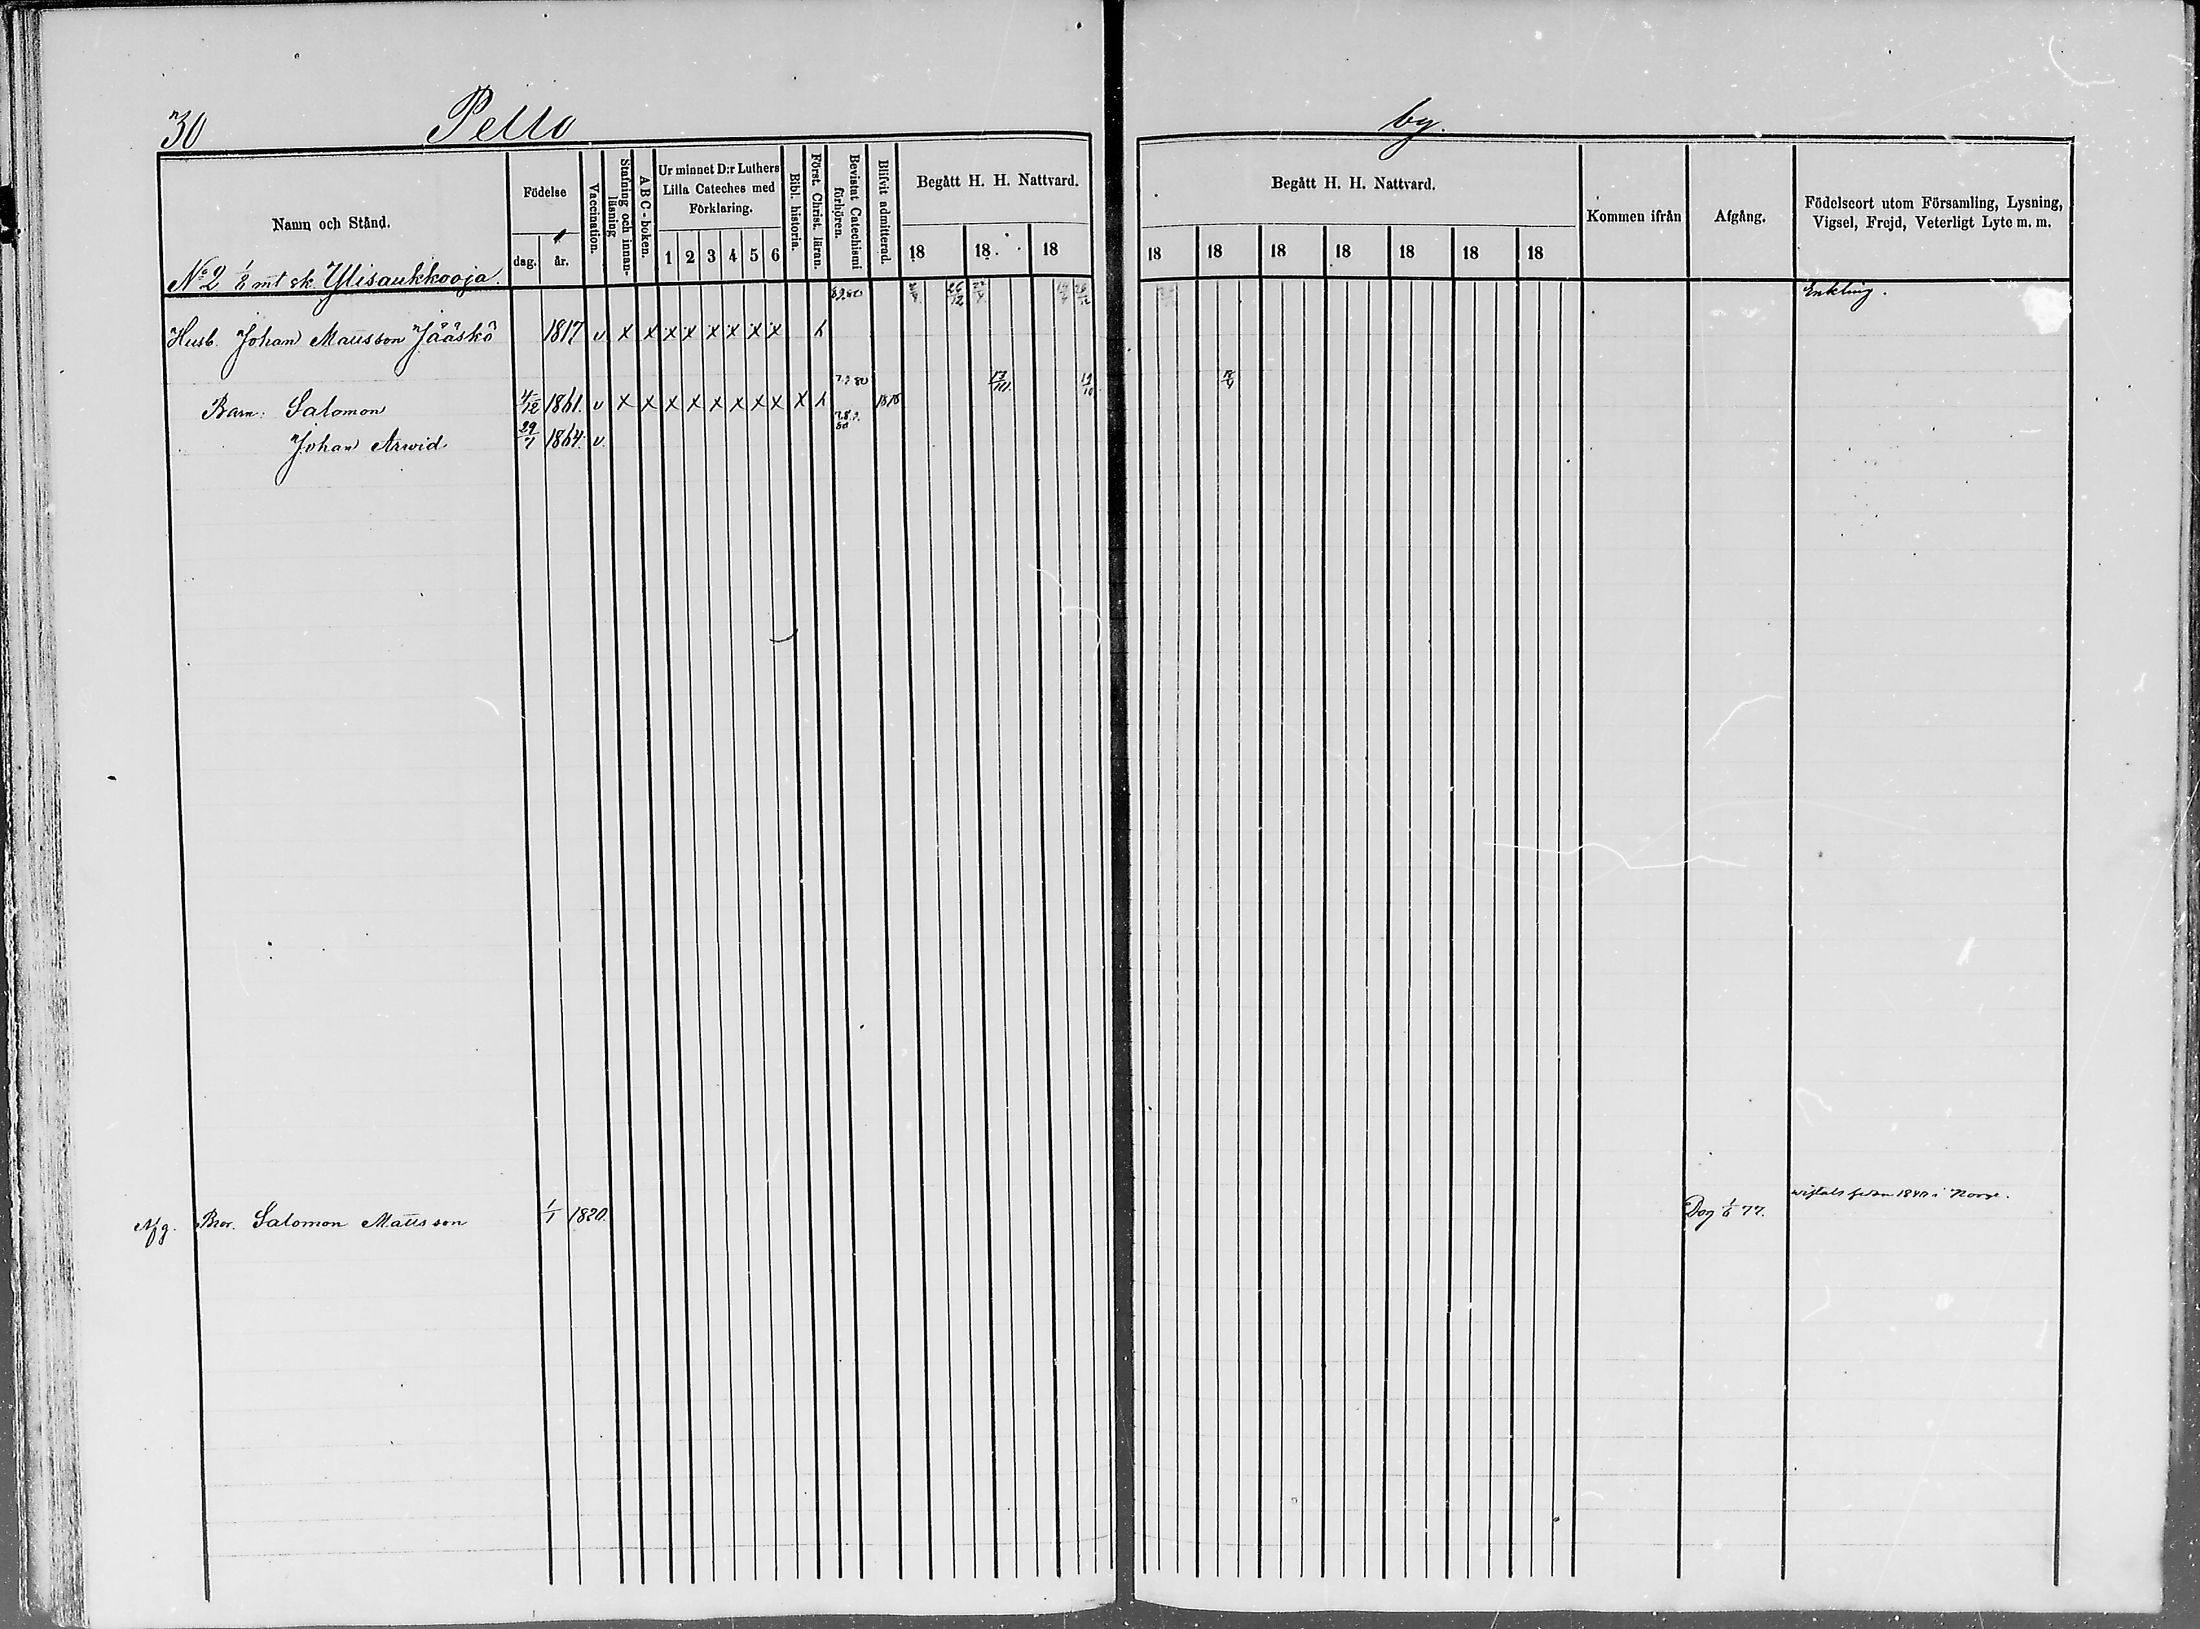 30 Pello by.
Namn och Stånd.
Födelse
dag. år.
Vaccination.
Stafning och innan-
läsning
A B C-boken.
Ur minnet D:r Luthers
Lilla Cateches med
Förklaring.
1 2 3 4 5 6
Bibl. historia.
Först. Christ. läran.
Bevistat Catechismi
förhören.
Blifvit admitterad.
Begått H. H. Nattvard.
18 18 18
Begått H. H. Nattvard.
18 18 18 18 18 18 18
Kommen ifrån
Afgång.
Födelseort utom Församling, Lysning,
Vigsel, Frejd, Veterligt Lyte m. m.
No 2 mt sk. Ylisaukkooja.
Enkling.
Husb. Johan Mattsson Jääskö 1817 v x x x x x x x x
Barn: Salomon 1861. v x x x x x x x x x
Johan Arwid 29/7 1864. v.
i Norge.
Afg. Bror. Salomon Mattsson 1/1 1820. 77.